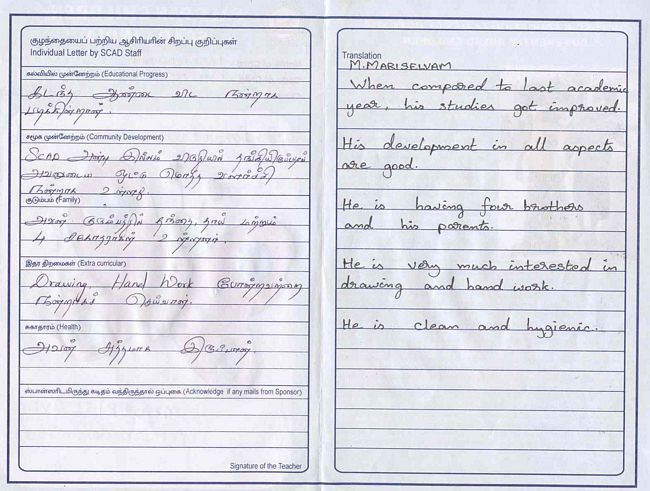 குழந்தையைப் பற்றிய ஆசிரியரின் சிறப்பு குறிப்புகள்
Individual Letter by SCAD Staff
கல்வியில் முன்னேற்றம் (Educational Progress)
கடந்த ஆண்டை விட நன்றாக
படிக்கின்றான்.
சமூக முன்னேற்றம் (Community Development)
SCAD அன்பு இல்லம் விடுதியில் தங்கியிருப்பதால்
அவனுடைய ஒட்டு மொத்த வளர்ச்சி
நன்றாக உள்ளது.
குடும்பம் (Family)
அவன் குடும்பத்தில் தந்தை, தாய் மற்றும்
4 சகோதரர்கள் உள்ளனர்.
இதர திறமைகள் (Extra curricular)
Drawing, Hand Work போன்றவற்றை
நன்றாகச் செய்வான்.
சுகாதாரம் (Health)
அவன் சுத்தமாக இருப்பான்.
ஸ்பான்ஸரிடமிருந்து கடிதம் வந்திருந்தால் ஒப்புகை (Acknowledge if any mails from Sponsor)
Signature of the Teacher
Translation
M. MARISELVAM
When compared to last academic
year, his studies got improved.
His development in all aspects
are good.
He is having four brothers
and his parents.
He is very much interested in
drawing and hand work.
He is clean and hygienic.